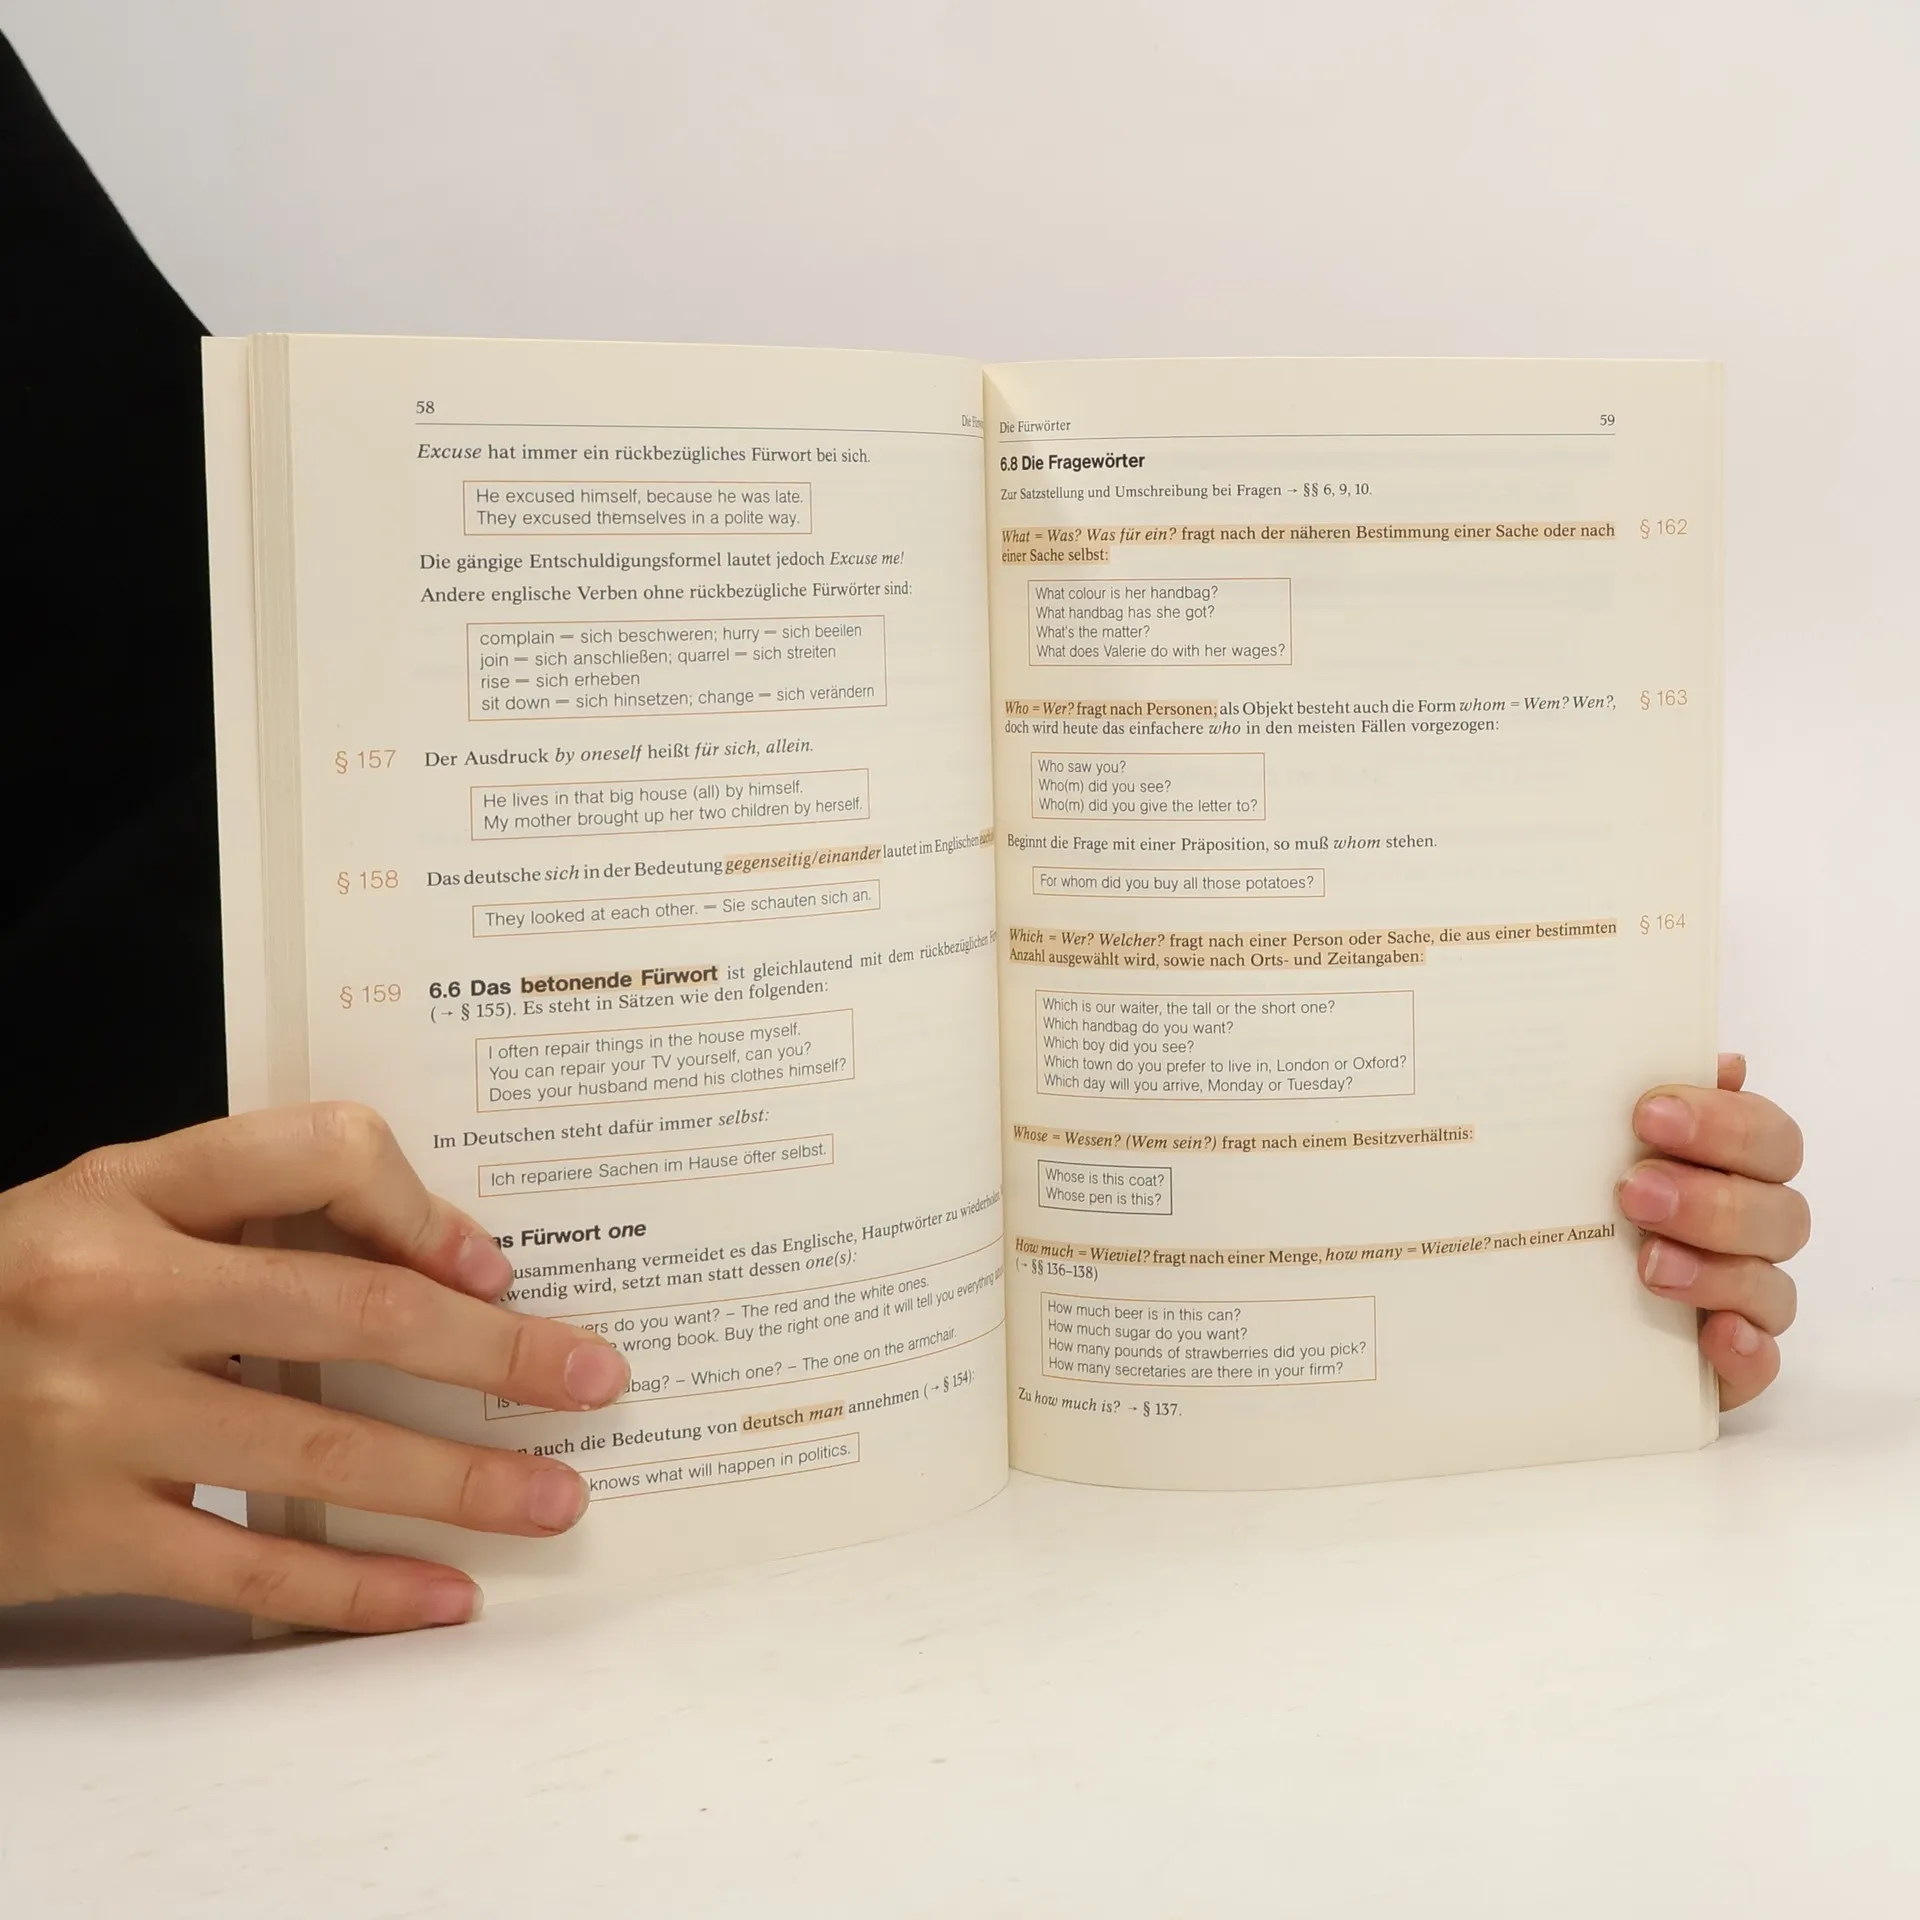 58
Excuse hat immer ein rückbezügliches Fürwort bei sich.
He excused himself, because he was late.
They excused themselves in a polite way.
Die gängige Entschuldigungsformel lautet jedoch Excuse me!
Andere englische Verben ohne rückbezügliche Fürwörter sind:
complain – sich beschweren; hurry – sich beeilen
join – sich anschließen; quarrel – sich streiten
rise – sich erheben
sit down – sich hinsetzen; change – sich verändern
§ 157 Der Ausdruck by oneself heißt für sich, allein.
He lives in that big house (all) by himself.
My mother brought up her two children by herself.
§ 158 Das deutsche sich in der Bedeutung gegenseitig/einander lautet im Englischen
They looked at each other. – Sie schauten sich an.
§ 159 6.6 Das betonende Fürwort ist gleichlautend mit dem rückbezüglichen
(→ § 155). Es steht in Sätzen wie den folgenden:
I often repair things in the house myself.
You can repair your TV yourself, can you?
Does your husband mend his clothes himself?
Im Deutschen steht dafür immer selbst:
Ich repariere Sachen im Hause öfter selbst.
Fürwort one
vermeidet es das Englische, Hauptwörter zu wiederholen.
wird, setzt man statt dessen one(s):
do you want? – The red and the white ones.
wrong book. Buy the right one and it will tell you everything
– Which one? – The one on the armchair.
auch die Bedeutung von deutsch man annehmen (→ § 154):
knows what will happen in politics.
Die Fürwörter 59
6.8 Die Fragewörter
Zur Satzstellung und Umschreibung bei Fragen → §§ 6, 9, 10.
What = Was? Was für ein? fragt nach der näheren Bestimmung einer Sache oder nach § 162
einer Sache selbst:
What colour is her handbag?
What handbag has she got?
What's the matter?
What does Valerie do with her wages?
Who = Wer? fragt nach Personen; als Objekt besteht auch die Form whom = Wem? Wen?, § 163
doch wird heute das einfachere who in den meisten Fällen vorgezogen:
Who saw you?
Who(m) did you see?
Who(m) did you give the letter to?
Beginnt die Frage mit einer Präposition, so muß whom stehen.
For whom did you buy all those potatoes?
Which = Wer? Welcher? fragt nach einer Person oder Sache, die aus einer bestimmten § 164
Anzahl ausgewählt wird, sowie nach Orts- und Zeitangaben:
Which is our waiter, the tall or the short one?
Which handbag do you want?
Which boy did you see?
Which town do you prefer to live in, London or Oxford?
Which day will you arrive, Monday or Tuesday?
Whose = Wessen? (Wem sein?) fragt nach einem Besitzverhältnis:
Whose is this coat?
Whose pen is this?
How much = Wieviel? fragt nach einer Menge, how many = Wieviele? nach einer Anzahl
(→ §§ 136–138)
How much beer is in this can?
How much sugar do you want?
How many pounds of strawberries did you pick?
How many secretaries are there in your firm?
Zu how much is? → § 137.